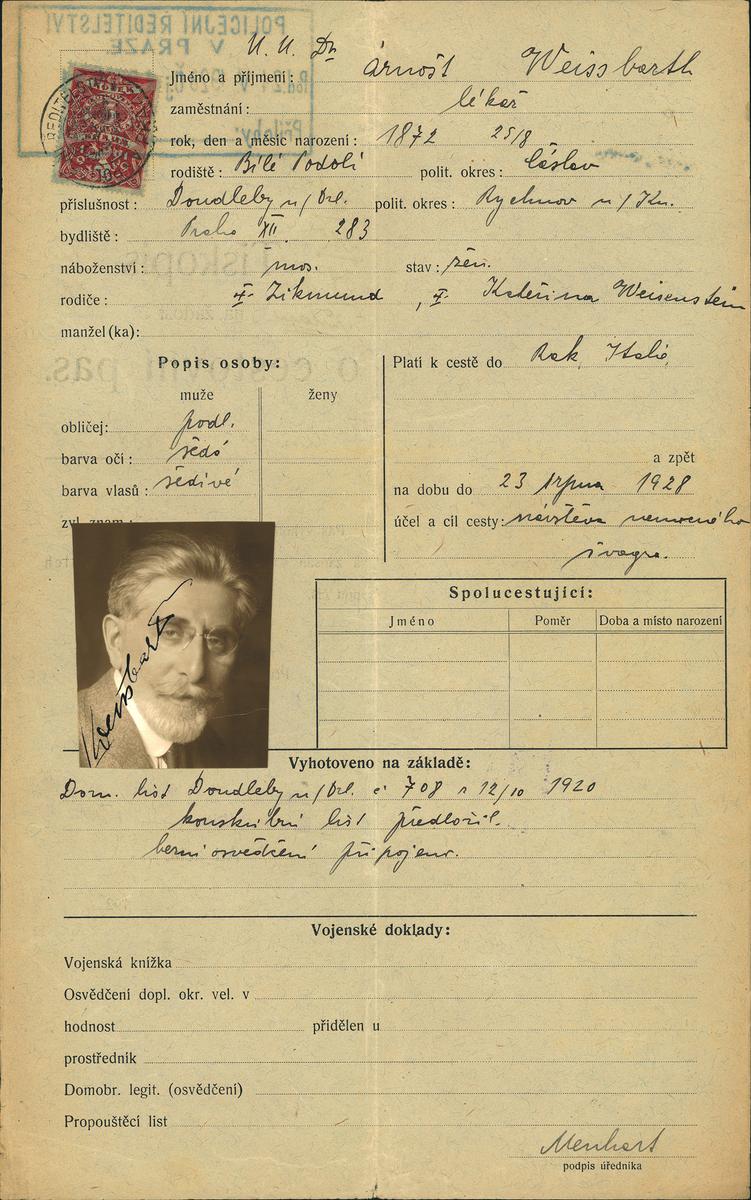 POLICEJNÍ ŘEDITELSTVÍ
V PRAZE
Přílohy:
Jméno a příjmení: M. U. Dr. Arnošt Weissbarth
zaměstnání: lékař
rok, den a měsíc narození: 1872 25/8
rodiště: Bílé Podolí polit. okres: Čáslav
příslušnost: Doudleby n/Orl. polit. okres: Rychnov n/Kn.
bydliště: Praha XII. 283
náboženství: mos. stav: žen.
rodiče: Zikmund, Kateřina Weisenstein
manžel (ka):
Popis osoby:
muže ženy
obličej: podl.
barva očí: šedé
barva vlasů: šedivé
zvl. znam.:
Platí k cestě do Rak. Italie,
a zpět
na dobu do 23 srpna 1928
účel a cíl cesty: návštěva nemocného
švagra.
Weissbarth
Spolucestující:
Jméno Poměr Doba a místo narození
Vyhotoveno na základě:
Dom. list Doudleby n/Orl. č 708 z 12/10 1920
konskribní list předložil.
berní osvědčení připojeno.
Vojenské doklady:
Vojenská knížka
Osvědčení dopl. okr. vel. v
hodnost přidělen u
prostředník
Domobr. legit. (osvědčení)
Propouštěcí list
Menhart
podpis úředníka